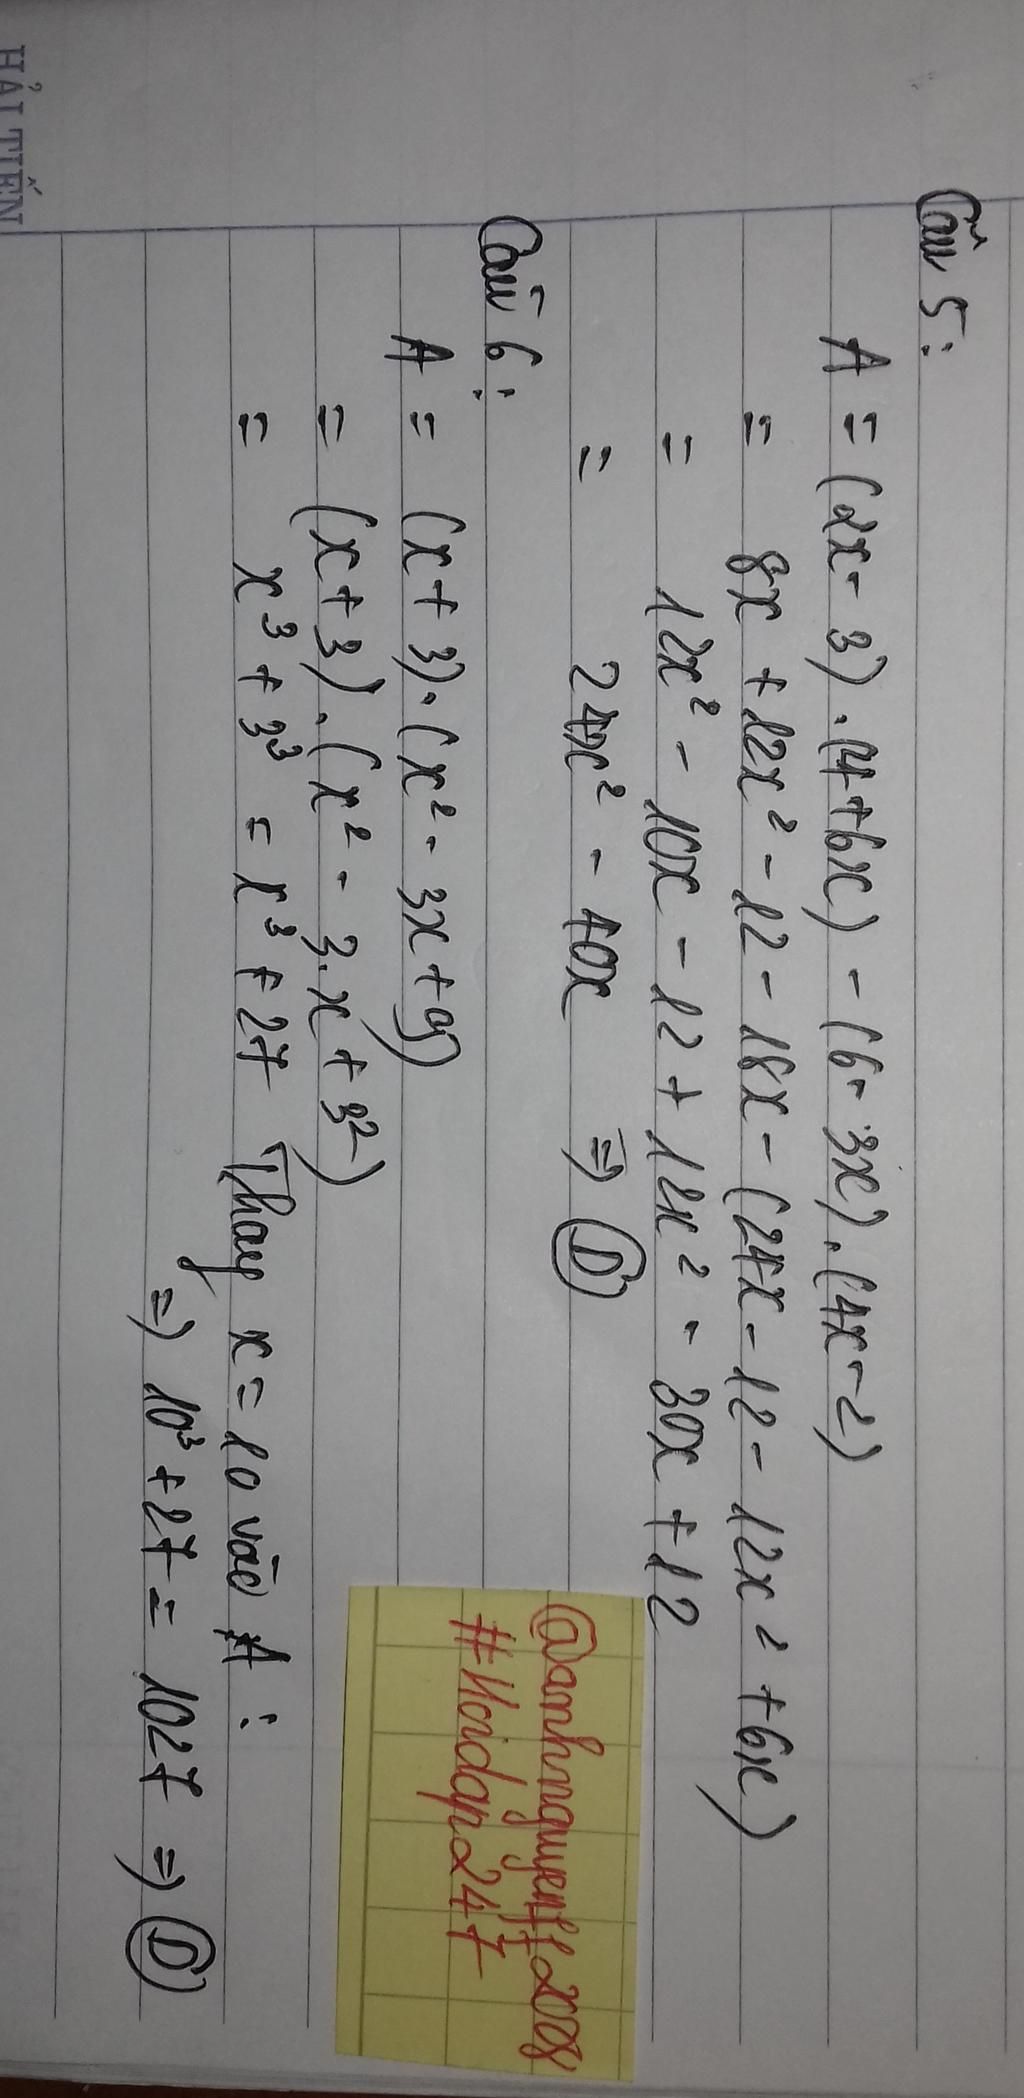 HẢI TIẾN
Câu 5:
A = (2x - 3) . (4 + 6x) - (6 - 3x) . (4x - 2)
= 8x + 12x² - 12 - 18x - (24x - 12 - 12x² + 6x)
= 12x² - 10x - 12 + 12x² - 30x + 12
= 24x² - 40x ⇒ D
Câu 6:
A = (x + 3) . (x² - 3x + 9)
= (x + 3) . (x² - 3.x + 3²)
= x³ + 3³ = x³ + 27 Thay x = 10 vào A :
⇒ 10³ + 27 = 1027 ⇒ D
#Hoidap247